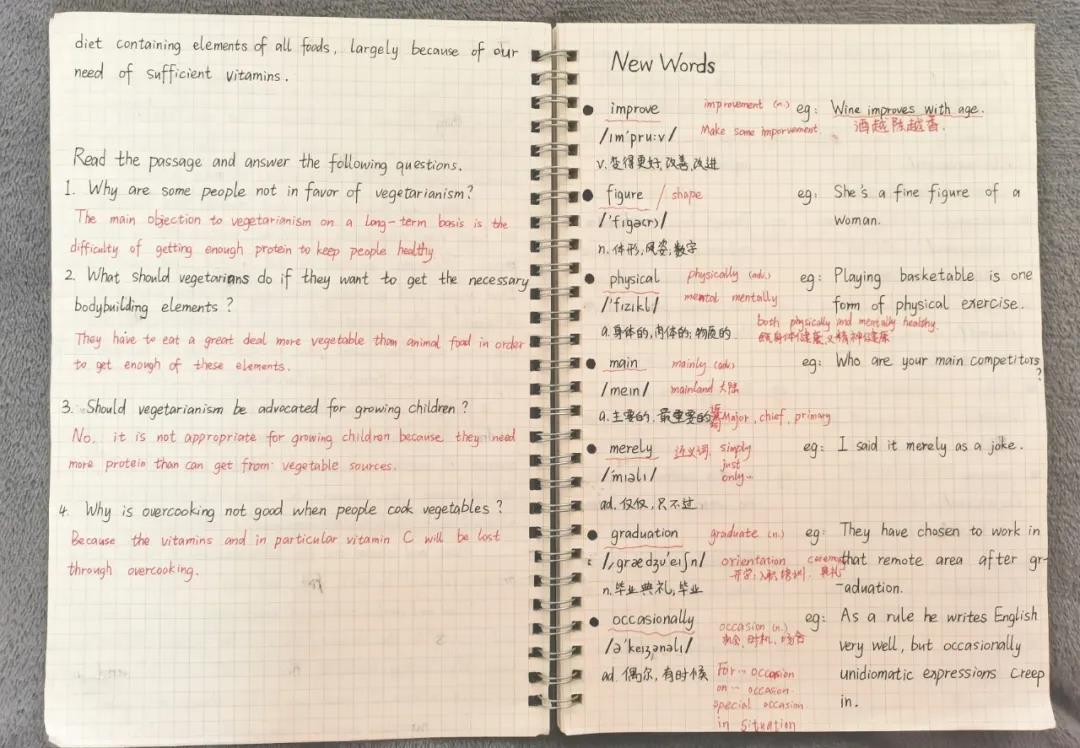 diet containing elements of all foods, largely because of our
need of sufficient vitamins.
Read the passage and answer the following questions.
1. Why are some people not in favor of vegetarianism?
The main objection to vegetarianism on a long-term basis is the
difficulty of getting enough protein to keep people healthy
2. What should vegetarians do if they want to get the necessary
bodybuilding elements?
They have to eat a great deal more vegetable than animal food in order
to get enough of these elements.
3. Should vegetarianism be advocated for growing children?
No, it is not appropriate for growing children because they need
more protein than can get from vegetable sources.
4. Why is overcooking not good when people cook vegetables?
Because the vitamins and in particular vitamin C will be lost
through overcooking.
New Words
improve improvement (n.) eg: Wine improves with age.
/ɪm'pru:v/ Make some imporvement 酒越陈越香.
v. 变得更好, 改善, 改进
figure / shape eg: She's a fine figure of a
/'fɪgə(r)/ woman.
n. 体形, 风姿, 数字
physical physically (adv.) eg: Playing basketable is one
/'fɪzɪkl/ mental mentally form of physical exercise.
a. 身体的, 肉体的; 物质的 both physically and mentally healthy.
身体健康,又精神健康
main mainly (adv.) eg: Who are your main competitors?
/meɪn/ mainland 大陆
a. 主要的, 最重要的 Major, chief, primary
merely 近义词: simply eg: I said it merely as a joke.
/'mɪəlɪ/ just
only…
ad. 仅仅, 只不过
graduation graduate (n.) eg: They have chosen to work in
/ˌgrædʒu'eɪʃn/ orientation that remote area after gr-
开学; 入职培训. 典礼
n. 毕业典礼, 毕业 -aduation.
occasionally occasion (n.) eg: As a rule he writes English
/ə'keɪʒənəlɪ/ 机会, 时机, 场合 very well, but occasionally
ad. 偶尔, 有时候 For… occasion unidiomatic expressions creep
on… occasion in.
special occasion
in situation